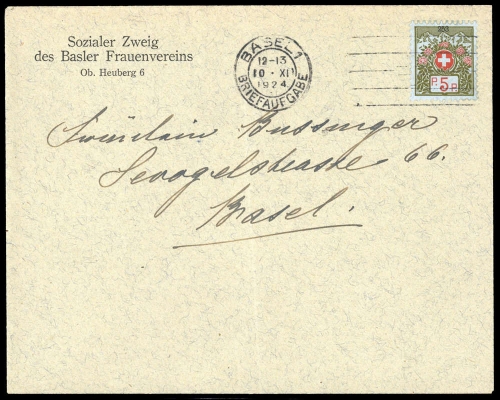 Sozialer Zweig
des Basler Frauenvereins
Ob. Heuberg 6
BASEL 1
12-13
10·XI
1924
BRIEFAUFGABE
P 5 P
Fräulein Bussinger
Sevogelstrasse 66.
Basel.